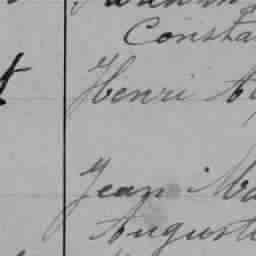 Consta
Henri A
Jean Ma
August